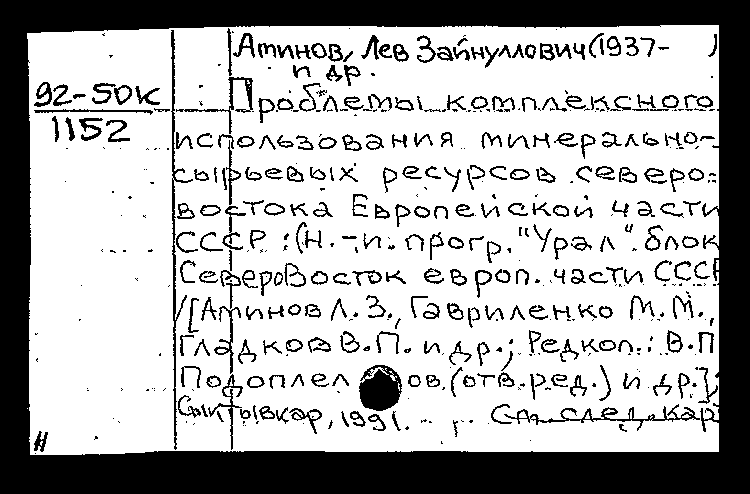 Аминов, Лев Зайнуллович (1937- )
и др.
92-50К
1152
Проблемы комплексного
использования минерально-
сырьевых ресурсов северо-
востока Европейской части
СССР : (Н.-и. прогр. "Урал". блок
СевероВосток европ. части СССР
/[Аминов Л. З., Гавриленко М. М.,
Гладков В. П. и др.; Редкол.: В.П
Подоплелов (отв. ред.) и др.];
Сыктывкар, 1991. См. след. кар
Н